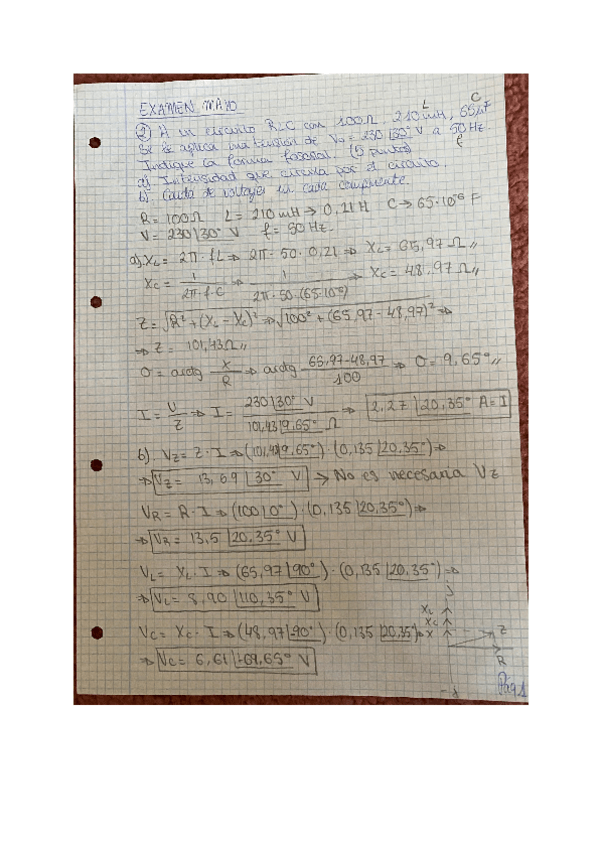 EXAMEN MAYO
L C
② A un circuito RLC con 100Ω 210mH, 65μF
Se le aplica una tensión de V₀ = 230|30° V a 50 Hz.
f
Indique la forma fasorial. (5 puntos)
a) Intensidad que circula por el circuito
b) Caida de voltajes en cada componente.
R = 100Ω L = 210mH → 0,21 H C → 65·10⁻⁶ F
V = 230|30° V f = 50 Hz.
a). X_L = 2π · f L ⇒ 2π · 50 · 0,21 ⇒ X_L = 65,97 Ω,,
X_C = 1 / 2π·f·C ⇒ 1 / 2π·50·(65·10⁻⁶) ⇒ X_C = 48,97 Ω,,
Z = √R² + (X_L - X_C)² ⇒ √100² + (65,97 - 48,97)² ⇒
⇒ Z = 101,43Ω,,
O = arctg X / R ⇒ arctg 65,97-48,97 / 100 ⇒ O = 9,65°,,
I = V / Z ⇒ I = 230|30° V / 101,43|9,65° Ω ⇒ 2,27 |20,35° A = I
b). V_Z = Z · I ⇒ (101,43|9,65°) · (0,135 |20,35°) ⇒
⇒ V_Z = 13,69 |30° V → No es necesaria V_Z
V_R = R · I ⇒ (100|0°) · (0,135 |20,35°) ⇒
⇒ V_R = 13,5 |20,35° V
V_L = X_L · I ⇒ (65,97|90°) · (0,135 |20,35°) ⇒
⇒ V_L = 8,90 |110,35° V
j
V_C = X_C · I ⇒ (48,97|-90°) · (0,135 |20,35°)
X_L
X_C
X
Z
R
⇒ V_C = 6,61 |-69,65° V
-j
Pág 1